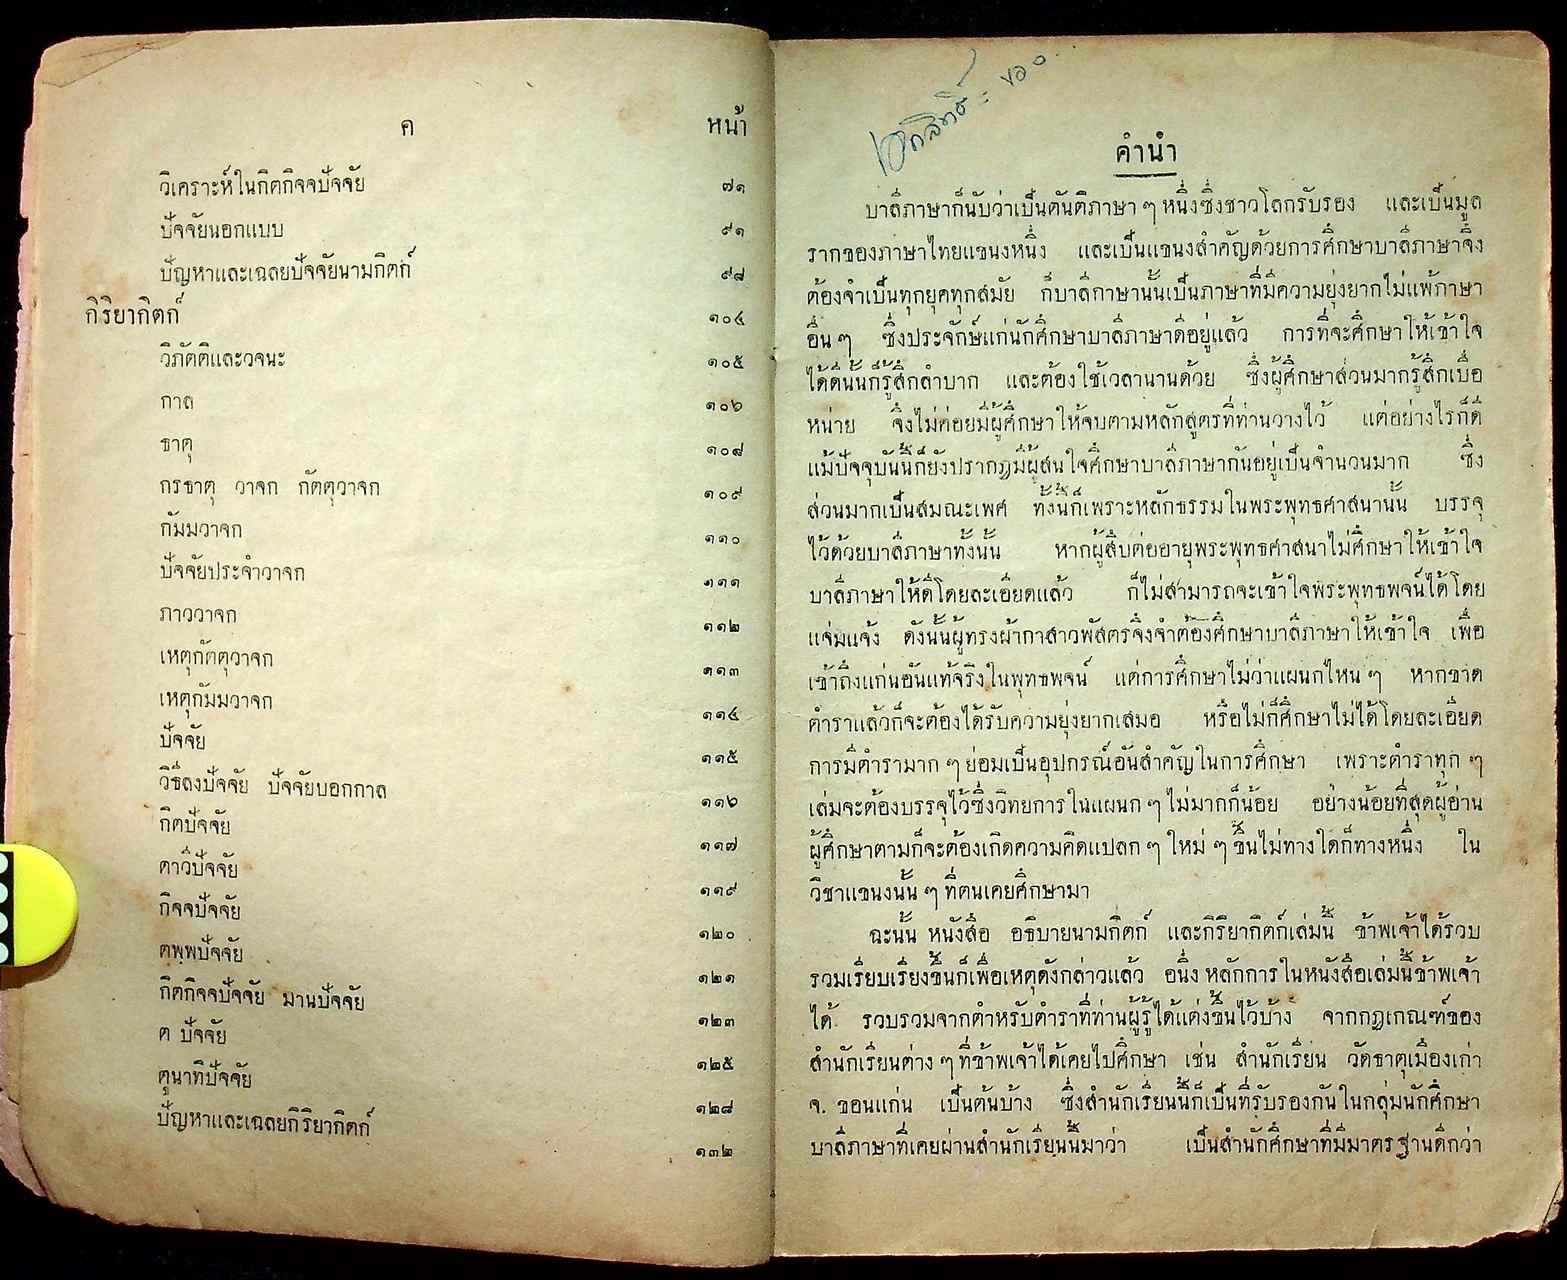 ค หน้า
วิเคราะห์ในกิตกิจจปัจจัย ๗๑
ปัจจัยนอกแบบ ๙๑
ปัญหาและเฉลยปัจจัยนามกิตก์ ๙๘
กิริยากิตก์ ๑๐๔
วิภัตติและวจนะ ๑๐๕
กาล ๑๐๖
ธาตุ ๑๐๘
กรธาตุ วาจก กัตตุวาจก ๑๐๙
กัมมวาจก ๑๑๐
ปัจจัยประจำวาจก ๑๑๑
ภาววาจก ๑๑๒
เหตุกัตตุวาจก ๑๑๓
เหตุกัมมวาจก ๑๑๔
ปัจจัย ๑๑๕
วิธีลงปัจจัย ปัจจัยบอกกาล ๑๑๖
กิตปัจจัย ๑๑๗
ตาวีปัจจัย ๑๑๙
กิจจปัจจัย ๑๒๐
ตพฺพปัจจัย ๑๒๑
กิตกิจจปัจจัย มานปัจจัย ๑๒๓
ต ปัจจัย ๑๒๕
ตูนาทิปัจจัย ๑๒๘
ปัญหาและเฉลยกิริยากิตก์ ๑๓๒
คำนำ
บาลีภาษาก็นับว่าเป็นตันติภาษา ๆ หนึ่งซึ่งชาวโลกรับรอง และเป็นมูล
รากของภาษาไทยแขนงหนึ่ง และเป็นแขนงสำคัญด้วยการศึกษาบาลีภาษาจึง
ต้องจำเป็นทุกยุคทุกสมัย ก็บาลีภาษานั้นเป็นภาษาที่มีความยุ่งยากไม่แพ้ภาษา
อื่น ๆ ซึ่งประจักษ์แก่นักศึกษาบาลีภาษาดีอยู่แล้ว การที่จะศึกษาให้เข้าใจ
ได้ดีนั้นก็รู้สึกลำบาก และต้องใช้เวลานานด้วย ซึ่งผู้ศึกษาส่วนมากรู้สึกเบื่อ
หน่าย จึงไม่ค่อยมีผู้ศึกษาให้จบตามหลักสูตรที่ท่านวางไว้ แต่อย่างไรก็ดี
แม้ปัจจุบันนี้ก็ยังปรากฏมีผู้สนใจศึกษาบาลีภาษากันอยู่เป็นจำนวนมาก ซึ่ง
ส่วนมากเป็นสมณะเพศ ทั้งนี้ก็เพราะหลักธรรมในพระพุทธศาสนานั้น บรรจุ
ไว้ด้วยบาลีภาษาทั้งนั้น หากผู้สืบต่ออายุพระพุทธศาสนาไม่ศึกษาให้เข้าใจ
บาลีภาษาให้ดีโดยละเอียดแล้ว ก็ไม่สามารถจะเข้าใจพระพุทธพจน์ได้โดย
แจ่มแจ้ง ดังนั้นผู้ทรงผ้ากาสาวพัสตร์จึงจำต้องศึกษาบาลีภาษาให้เข้าใจ เพื่อ
เข้าถึงแก่นอันแท้จริงในพุทธพจน์ แต่การศึกษาไม่ว่าแผนกไหน ๆ หากขาด
ตำราแล้วก็จะต้องได้รับความยุ่งยากเสมอ หรือไม่ก็ศึกษาไม่ได้โดยละเอียด
การมีตำรามาก ๆ ย่อมเป็นอุปกรณ์อันสำคัญในการศึกษา เพราะตำราทุก ๆ
เล่มจะต้องบรรจุไว้ซึ่งวิทยการในแผนก ๆ ไม่มากก็น้อย อย่างน้อยที่สุดผู้อ่าน
ผู้ศึกษาตามก็จะต้องเกิดความคิดแปลก ๆ ใหม่ ๆ ขึ้นไม่ทางใดก็ทางหนึ่ง ใน
วิชาแขนงนั้น ๆ ที่ตนเคยศึกษามา
ฉะนั้น หนังสือ อธิบายนามกิตก์ และกิริยากิตก์เล่มนี้ ข้าพเจ้าได้รวบ
รวมเรียบเรียงขึ้นก็เพื่อเหตุดังกล่าวแล้ว อนึ่ง หลักการในหนังสือเล่มนี้ข้าพเจ้า
ได้ รวบรวมจากตำหรับตำราที่ท่านผู้รู้ได้แต่งขึ้นไว้บ้าง จากกฎเกณฑ์ของ
สำนักเรียนต่าง ๆ ที่ข้าพเจ้าได้เคยไปศึกษา เช่น สำนักเรียน วัดธาตุเมืองเก่า
จ. ขอนแก่น เป็นต้นบ้าง ซึ่งสำนักเรียนนี้ก็เป็นที่รับรองกันในกลุ่มนักศึกษา
บาลีภาษาที่เคยผ่านสำนักเรียนนี้มาว่า เป็นสำนักศึกษาที่มีมาตรฐานดีกว่า